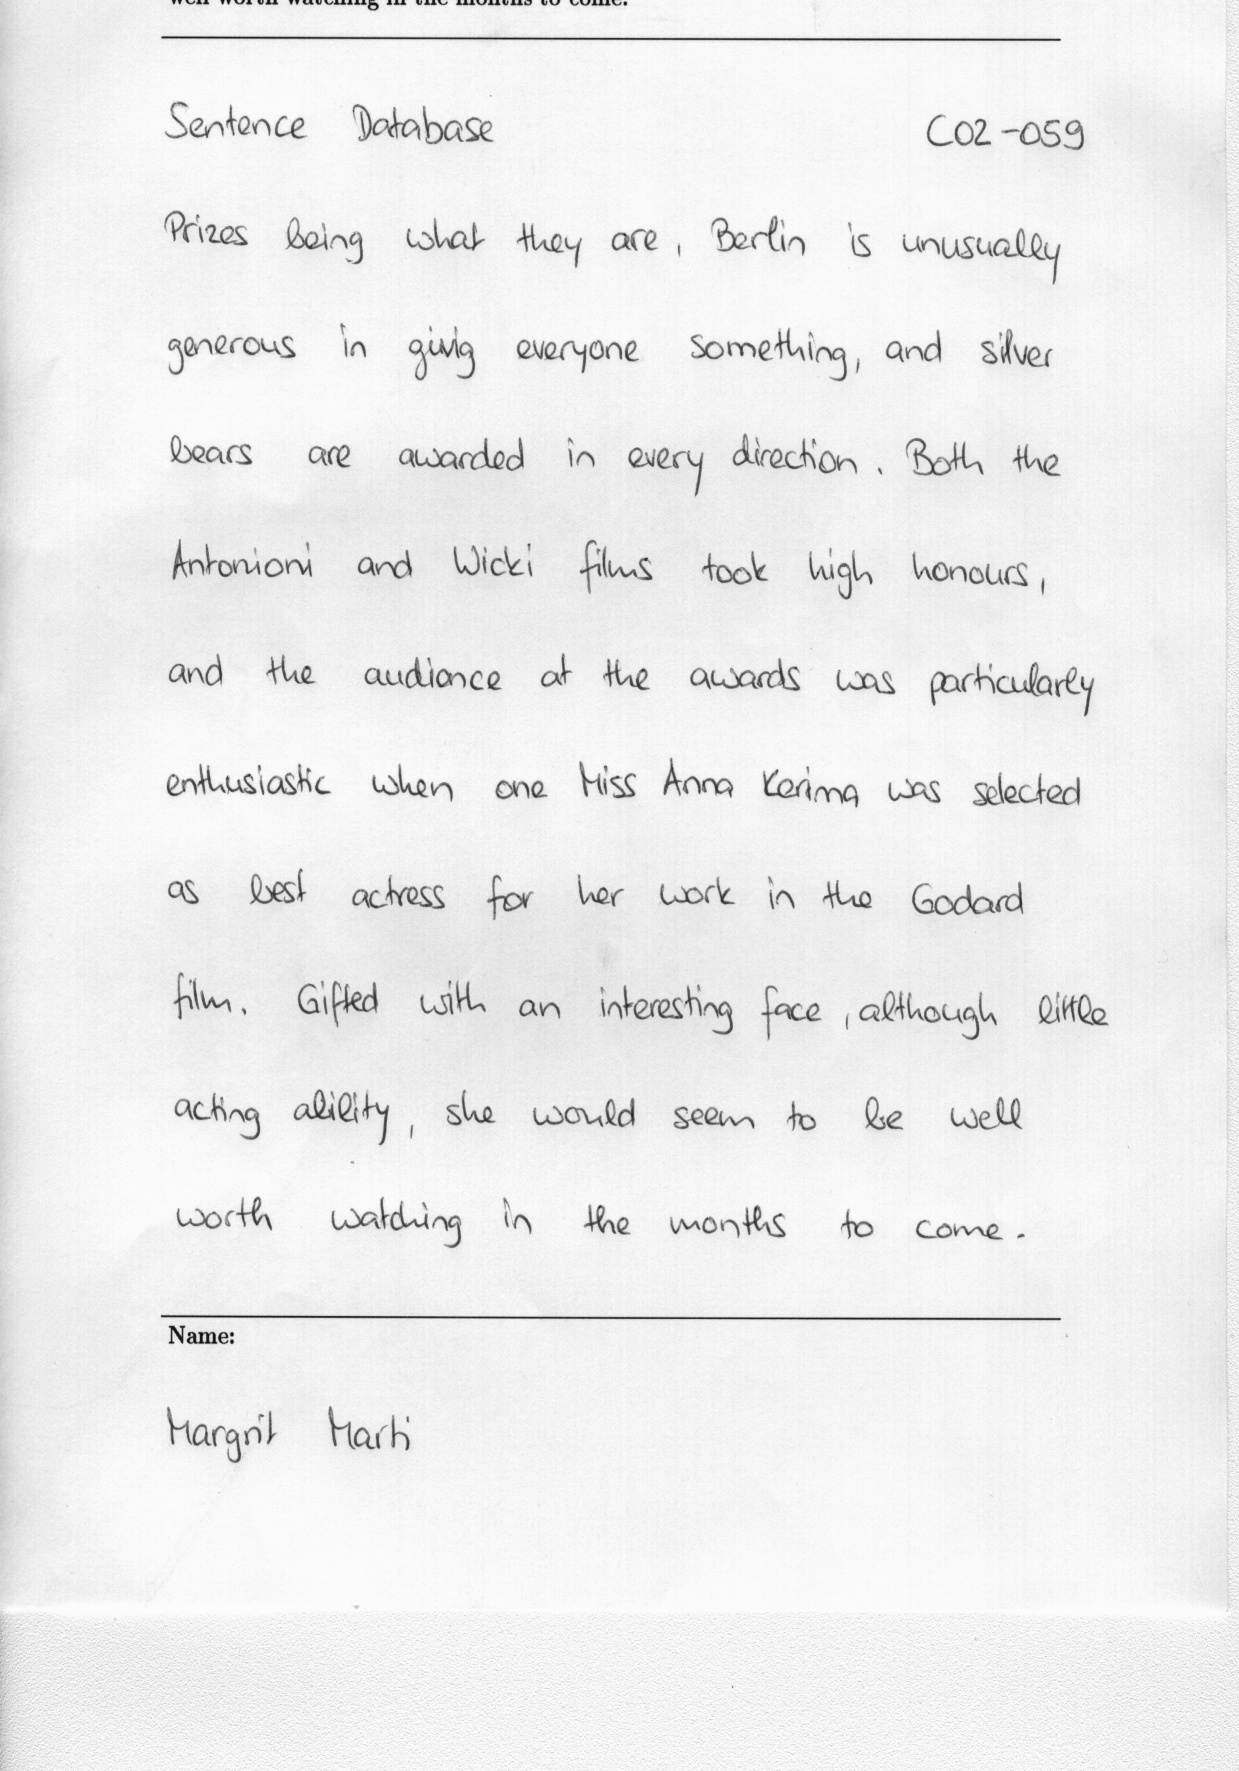 well worth watching in the months to come.
Sentence Database C02-059
Prizes being what they are, Berlin is unusually
generous in givig everyone something, and silver
bears are awarded in every direction. Both the
Antonioni and Wicki films took high honours,
and the audience at the awards was particularly
enthusiastic when one Miss Anna Kerima was selected
as best actress for her work in the Godard
film. Gifted with an interesting face, although little
acting ability, she would seem to be well
worth watching in the months to come.
Name:
Margrit Marti